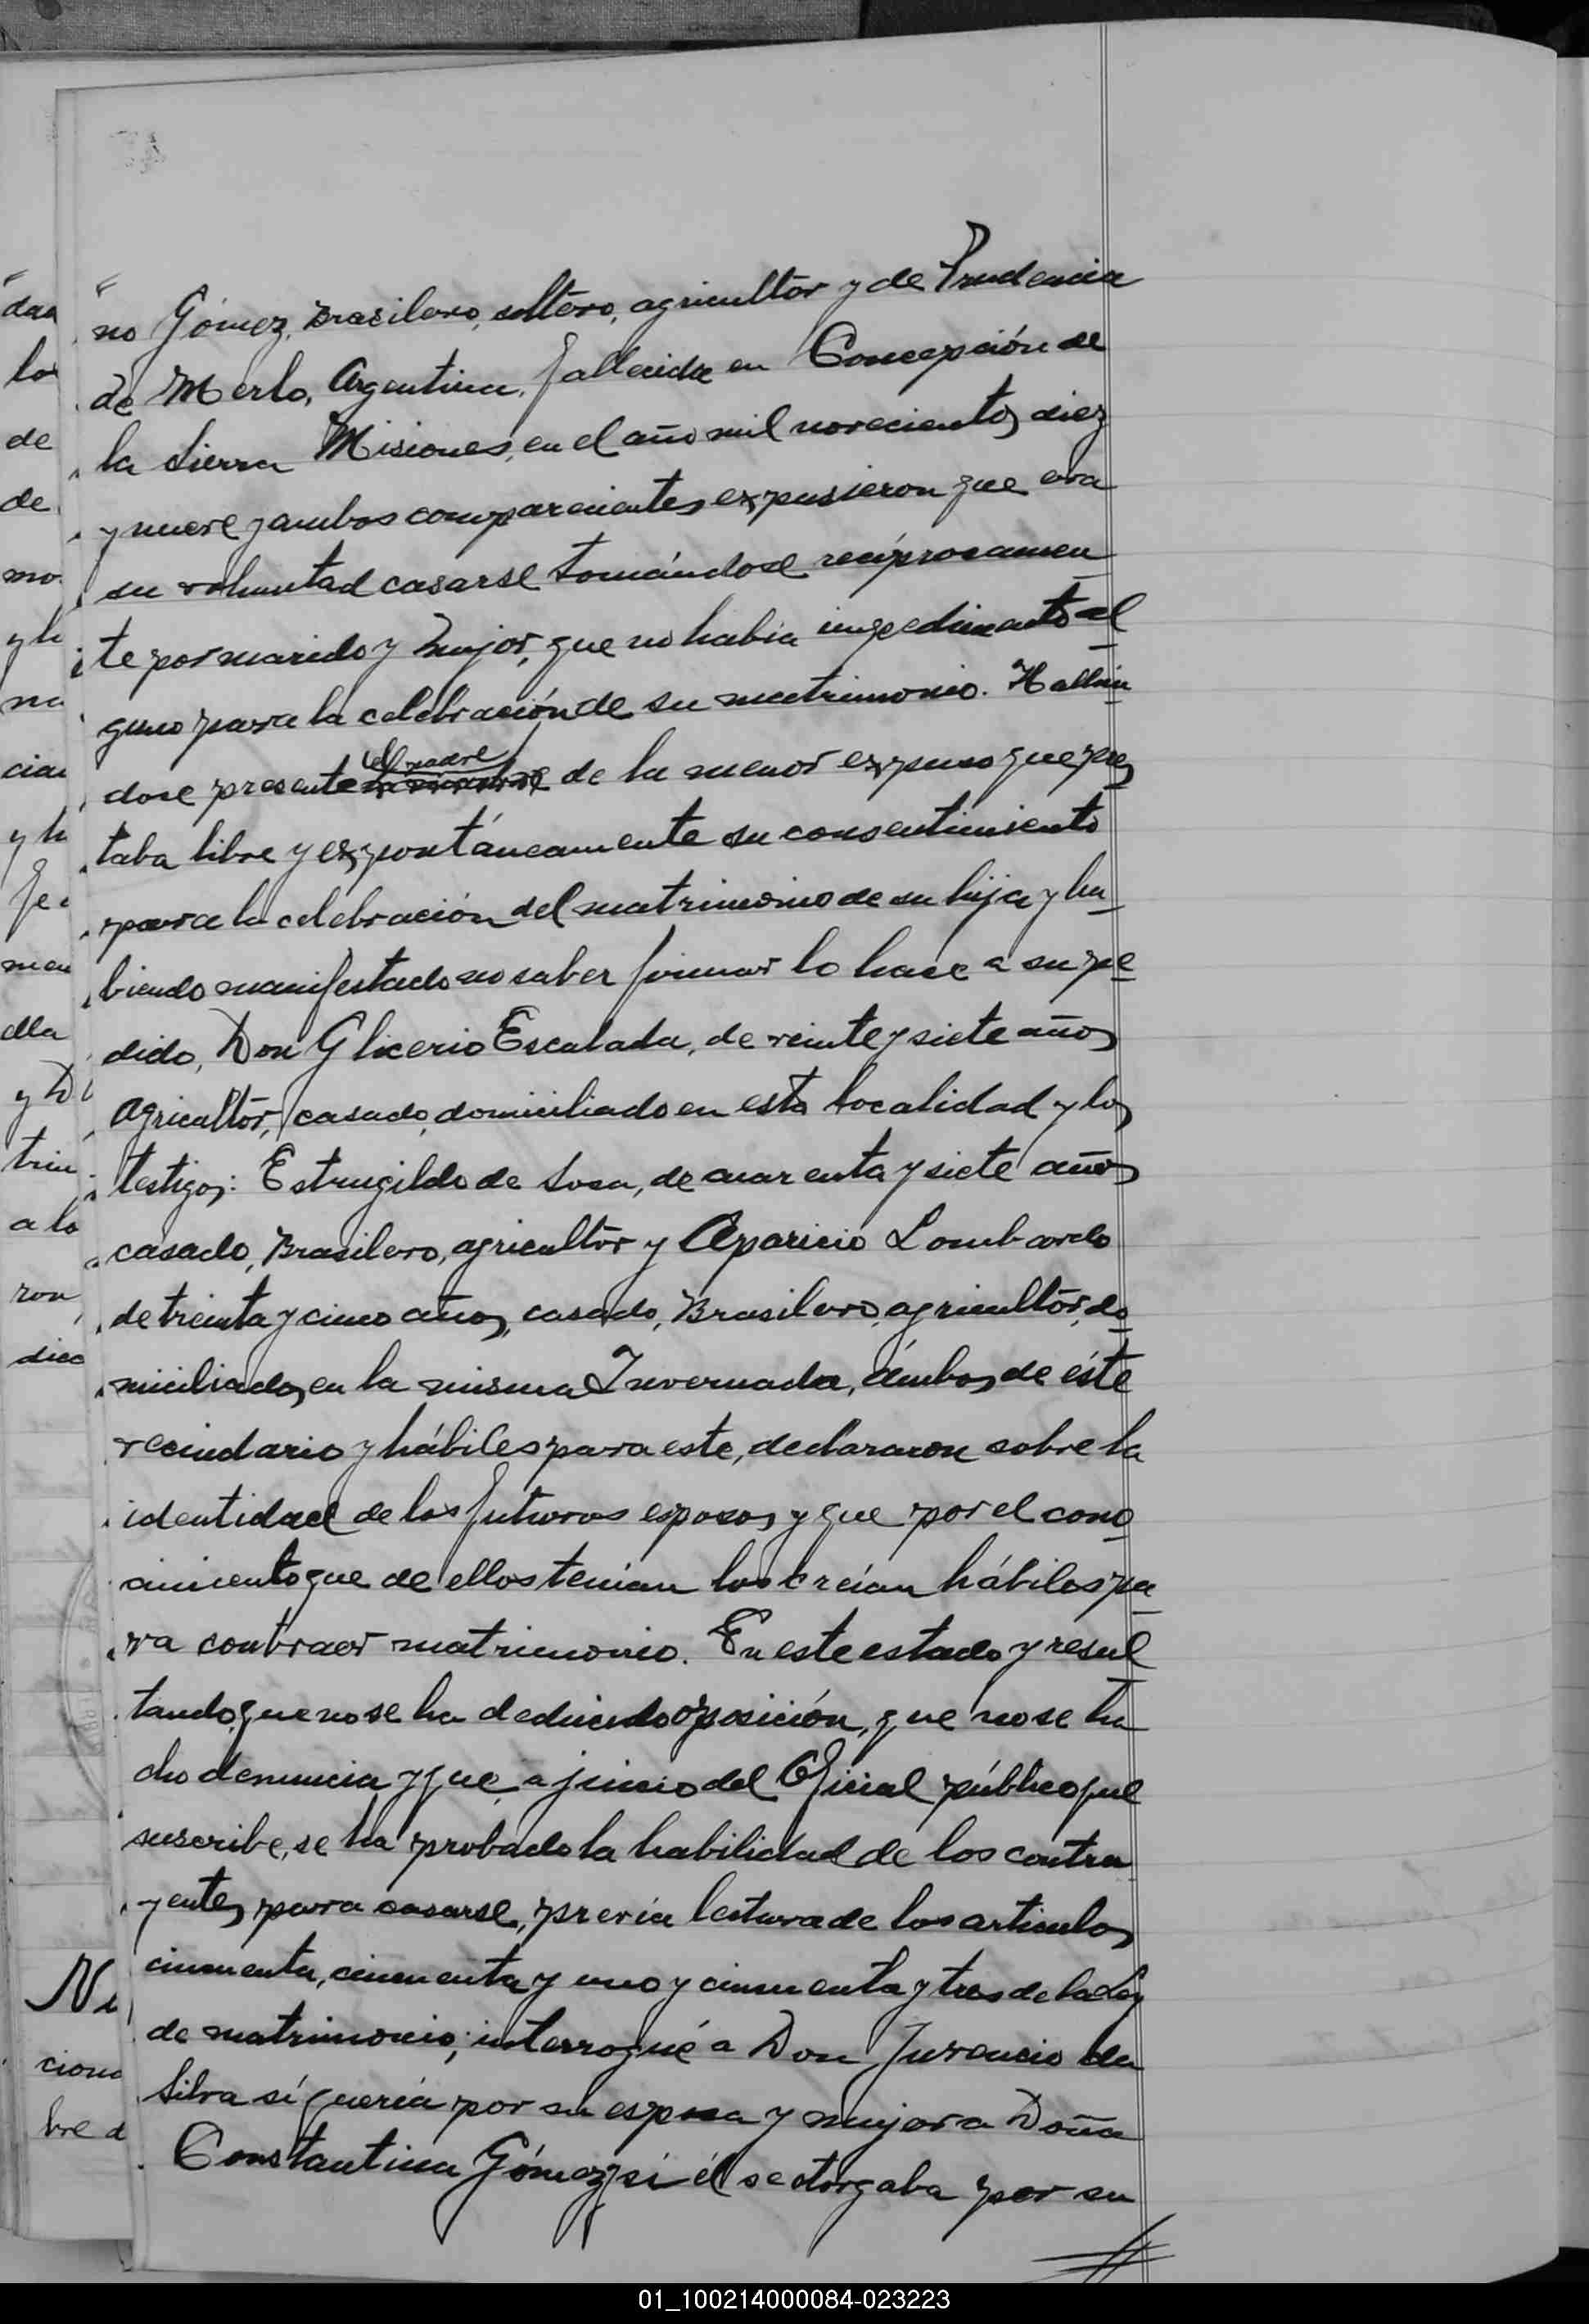 no Gómez, Brasilero, soltero, agricultor y de Prudencia
de Merlo, Argentina, fallecida en Concepción de
la Sierra Misiones, en el año mil novecientos diez
y nueve y ambos comparecientes expusieron que era
su voluntad casarse tomándose recíprocamen
te por marido y mujer, que no había impedimento al
guno para la celebración de su matrimonio. Hallán
dose presente el padre de la menor expuso que pres
taba libre y expontáneamente su consentimiento
para la celebración del matrimonio de su hija y ha
biendo manifestado no saber firmar lo hace a su pe
dido, Don Glicerio Escalada, de veinte y siete años
agricultor, casado, domiciliado en esta localidad y los
testigos: Estrugildo de Sosa, de cuarenta y siete años
casado, Brasilero, agricultor y Aparicio Lombardo
de treinta y cinco años, casado, Brasilero, agricultor, do
miciliados en la misma Invernada, ámbos de éste
vecindario y hábiles para este, declararon sobre la
identidad de los futuros esposos y que por el cono
cimiento que de ellos tenían los creían hábiles pa
ra contraer matrimonio. En este estado y resul
tando, que no se ha deducido oposición, que no se ha
cho denuncia y que, a juicio del Oficial público que
suscribe, se ha probado la habilidad de los contra
yentes para casarse, previa lectura de los articulos
cincuenta, cincuenta y uno y cincuenta y tres de la Ley
de matrimonio; interrogué a Don Juvencio da
Silva sí quería por su esposa y mujer a Doña
Constantina Gómez y si él se otorgaba por su
01_100214000084-023223